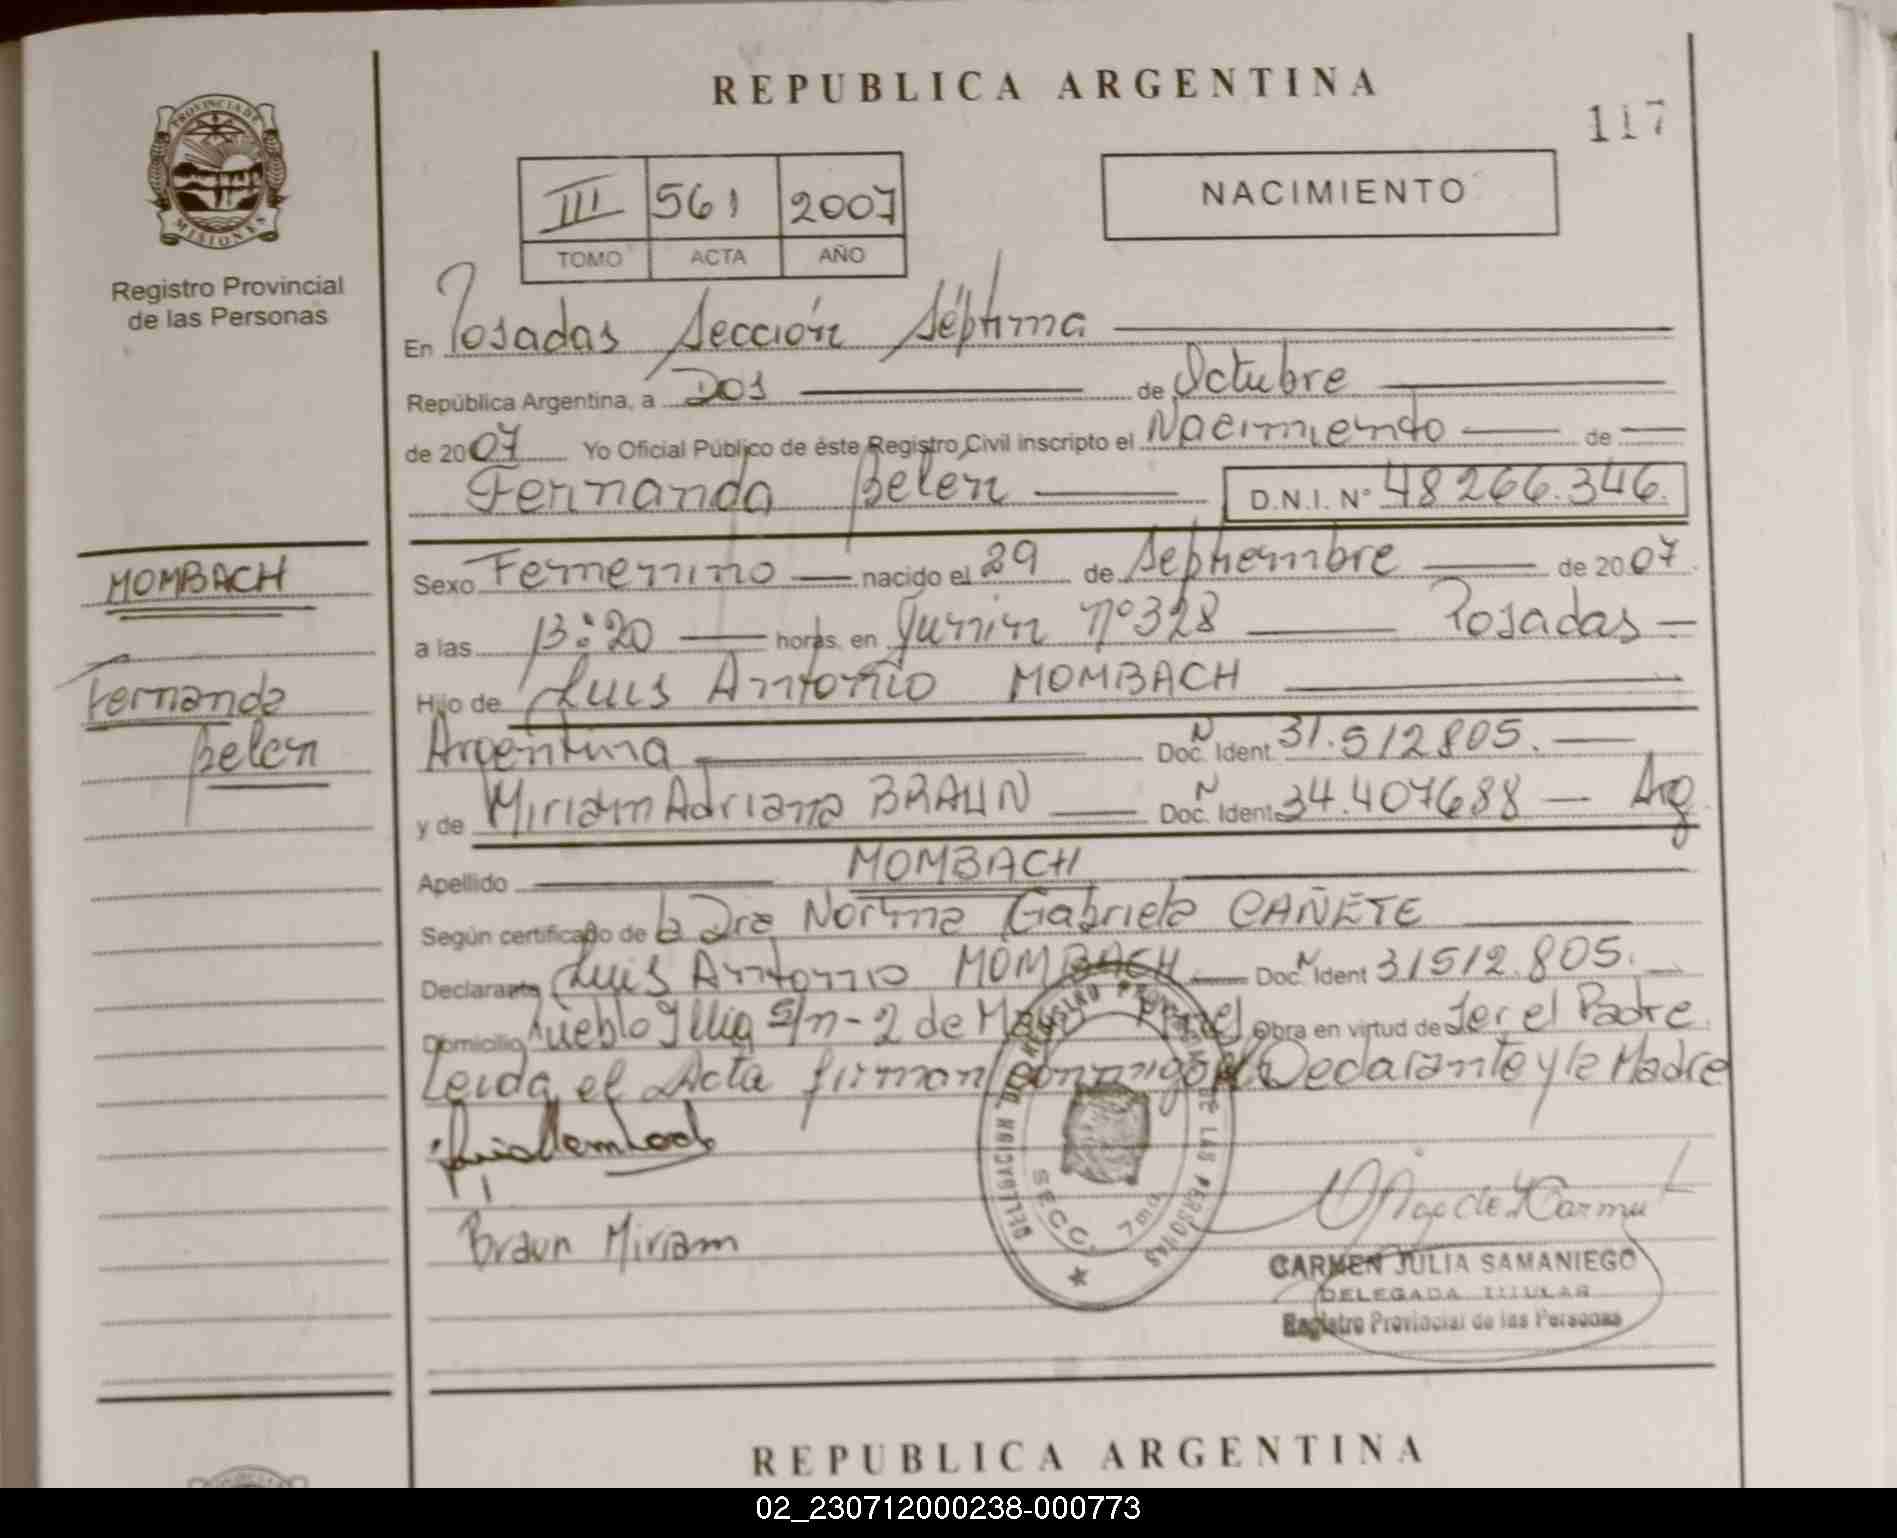 REPUBLICA ARGENTINA
117
PROVINCIA DE
MISIONES
Registro Provincial
de las Personas
III 561 2007
TOMO ACTA AÑO
NACIMIENTO
En Posadas Sección Séptima
República Argentina, a Dos de Octubre
de 2007 Yo Oficial Público de éste Registro Civil inscripto el Nacimiento de
Fernanda Belen D.N.I. Nº 48266.346.
MOMBACH
Fernanda
Belen
Sexo Femenino nacido el 29 de Septiembre de 2007
a las 13:20 horas, en Junin nº 328 Posadas
Hijo de Luis Antonio MOMBACH
Argentina Doc. N Ident. 31.512805.
y de Miriam Adriana BRAUN Doc. N Ident. 34.407688 Arg.
Apellido MOMBACH
Según certificado de la Dra Norma Gabriela CAÑETE
Declarante Luis Antonio MOMBACH Doc. N Ident 31512.805.
Domicilio Pueblo Illia S/n - 2 de Mayo Obra en virtud de Ser el Padre
Leida el Acta firman conmigo el Declarante y la Madre
DELEGACION DE REGISTRO PROVINCIAL DE LAS PERSONAS
SECC. 7ma
Luis Mombach
Braun Miriam
CARMEN JULIA SAMANIEGO
DELEGADA TITULAR
Registro Provincial de las Personas
REPUBLICA ARGENTINA
02_230712000238-000773